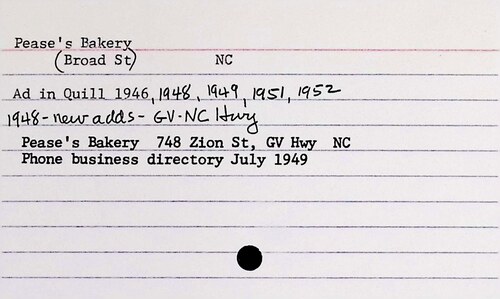 Pease's Bakery
(Broad St) NC
Ad in Quill 1946, 1948, 1949, 1951, 1952
1948 - new adds - GV-NC Hwy
Pease's Bakery 748 Zion St, GV Hwy NC
Phone business directory July 1949